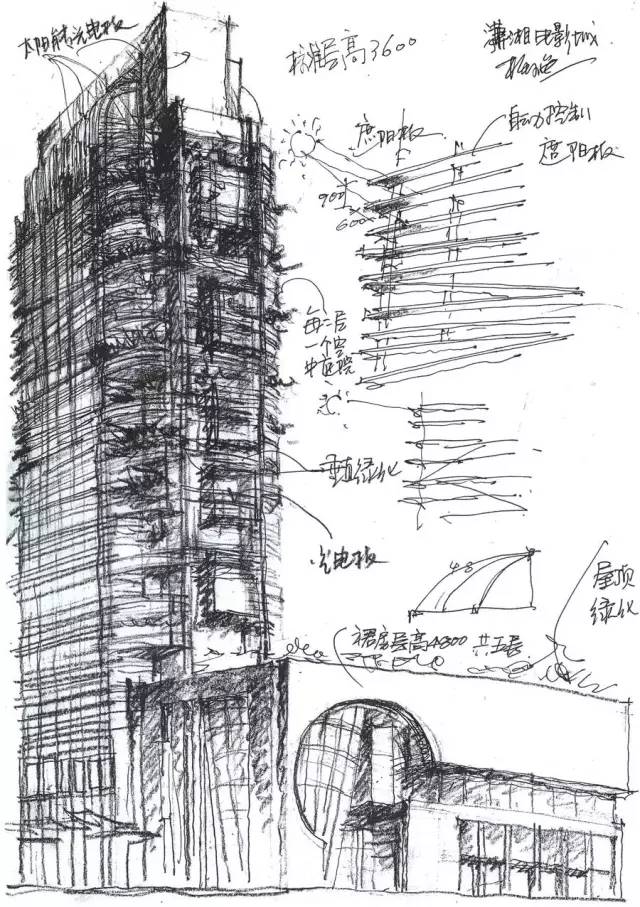 太阳能光电板
标准层高3600
潇湘电影城
遮阳板
自动控制
遮阳板
90
600
每二层
一个空
中庭院
垂直绿化
光电板
4.8
屋顶
绿化
裙房层高4800 共五层